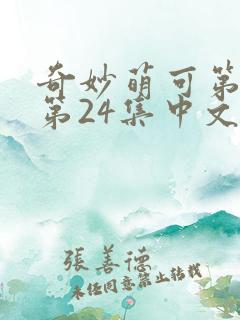 奇妙萌可第
第24集中文
張善德
未经同意禁止转载